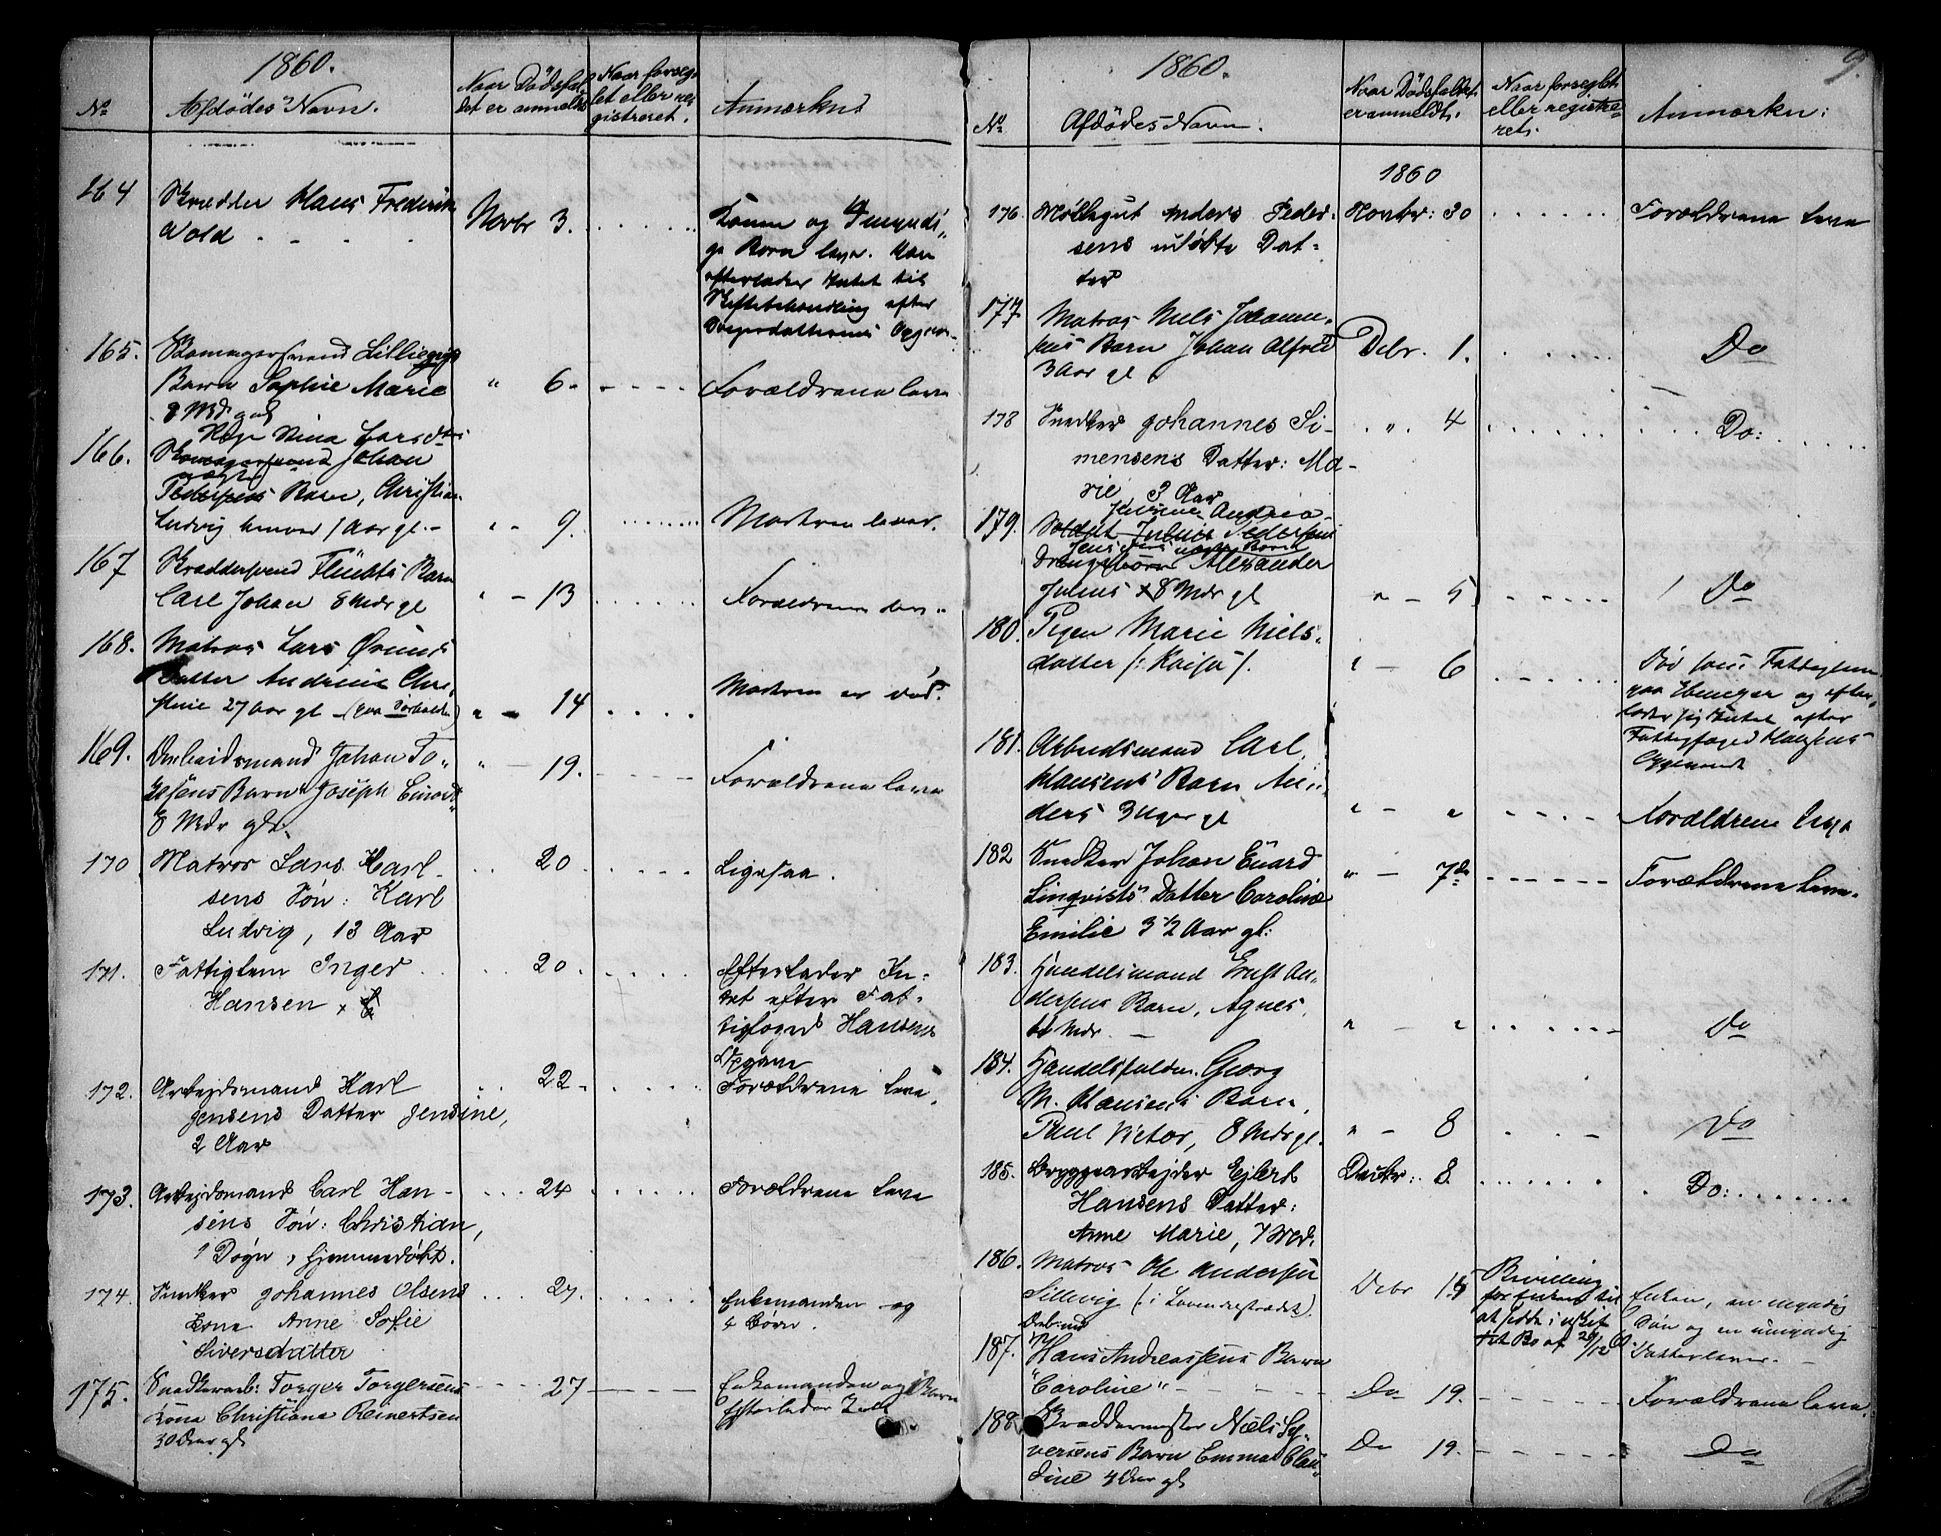 1860.
No
Afdødes Navn.
Naar Dødsfal-
det er anmeldt
Naar forseg-
let eller re-
gistreret.
Anmærkn
164
Skrædder Hans Frederik
Wold
Novbr 3.
Konen og 4 umyndi-
ge Børn lever. Han
efterlader Intet til
Skiftebehandling efter
165.
Barn Sophie Marie
8 Mdr gl
" 6.
Forældrene leve
166.
Pige Nina Larsdtr
Skomagersvend Johan
Pedersens Barn, Christian
Ludvig 1 Aar gl.
" 9.
Moderen lever.
167
Skræddersvend Flincks Barn
Carl Johan 8 Mdr gl
" - 13
Forældrene leve
168.
Matros Lars
Datter Andrine Chri-
stine 27 Aar gl
" - 14
Moderen er død.
169.
Arbeidsmand Johan To-
Barn Joseph
8 Mdr gl.
" - 19.
Forældrene leve
170
Matros Lars Karl-
sens Søn: Karl
Ludvig, 13 Aar
20
Ligesaa.
171.
Fattiglem Inger
Hansen
20.
Efterlader In-
tet efter Fat-
tigfoged Hansens
Opgave
172.
Arbejdsmand Karl
Jensens Datter Jensine,
2 Aar
22
Forældrene leve.
173.
Arbejdsmand Carl Han-
sens Søn: Christian,
1 Døgn, hjemmedøbt.
24
Forældrene leve
174.
Snedker Johannes Olsens
Kone Anne Sofie
Siversdatter
27
Enkemanden og
4 Børn.
175.
Snedkerarb: Torger Torgersens
Kone Christiane Reinertsen
30 Aar gl
27
Enkemanden og 1 Barn
Efterlader Intet
1860.
9.
No
Afdødes Navn.
Naar Dødsfaldet
er anmeldt.
Naar forseglet
eller registre-
ret.
Anmærkn:
1860
176.
Møllegut Anders Peder-
sens udøbte Dat-
ter
Novbr: 30
Forældrene leve
177
Matros Niels Johanne-
sens Barn Johan Alfred
3 Aar gl
Debr. 1.
Do
178
Snedker Johannes Si-
mensens Datter: Ma-
rie, 3 Aar
" 4
Do:
179.
Jensine Andrea
Soldat Julius Pedersens
Drengebarn Alexander
Julius 8 Mdr gl
" - 5
Do
180.
Pigen Marie Niels-
datter /: Kaisa /.
" - 6
Død som Fattiglem
paa Ebenezer og efter-
lader sig Intet efter
Fattigfoged Hansens
Opgivende
181.
Arbeidsmand Carl
Hansens Barn An-
ders 3 Uger gl
" - "
Forældrene leve
182
Snedker Johan Edvard
Linqvists Datter Caroline
Emilie 3 1/2 Aar gl:
" - 7de
Forældrene leve.
183.
Handelsmand Ernst An-
dersens Barn, Agnes,
6 Mdr.
" - "
Do
184.
Handelsfuldm. Georg
M. Hansens Barn,
Paul Victor, 8 Mdr gl.
" - 8
Do
185.
Bryggearbejder Ejlert
Hansens Datter:
Anne Marie, 7 Md.
Decbr: 8.
Do:
186.
Matros Ole Andersen
Sillevig (: i Tovenestrædet)
Debr 15
Bevilling
for Enken til
at sidde i uskif-
tet Bo af 20/12 60
Enken, en myndig
Søn og en umyndig
Datter lever.
187.
Hans Andreassens Barn
"Caroline"
Do 19.
Forældrene leve.
188.
Skræddermester Niels Sy-
versens Barn Emma Clau-
dine 4 Aar gl
Do 19.
Do